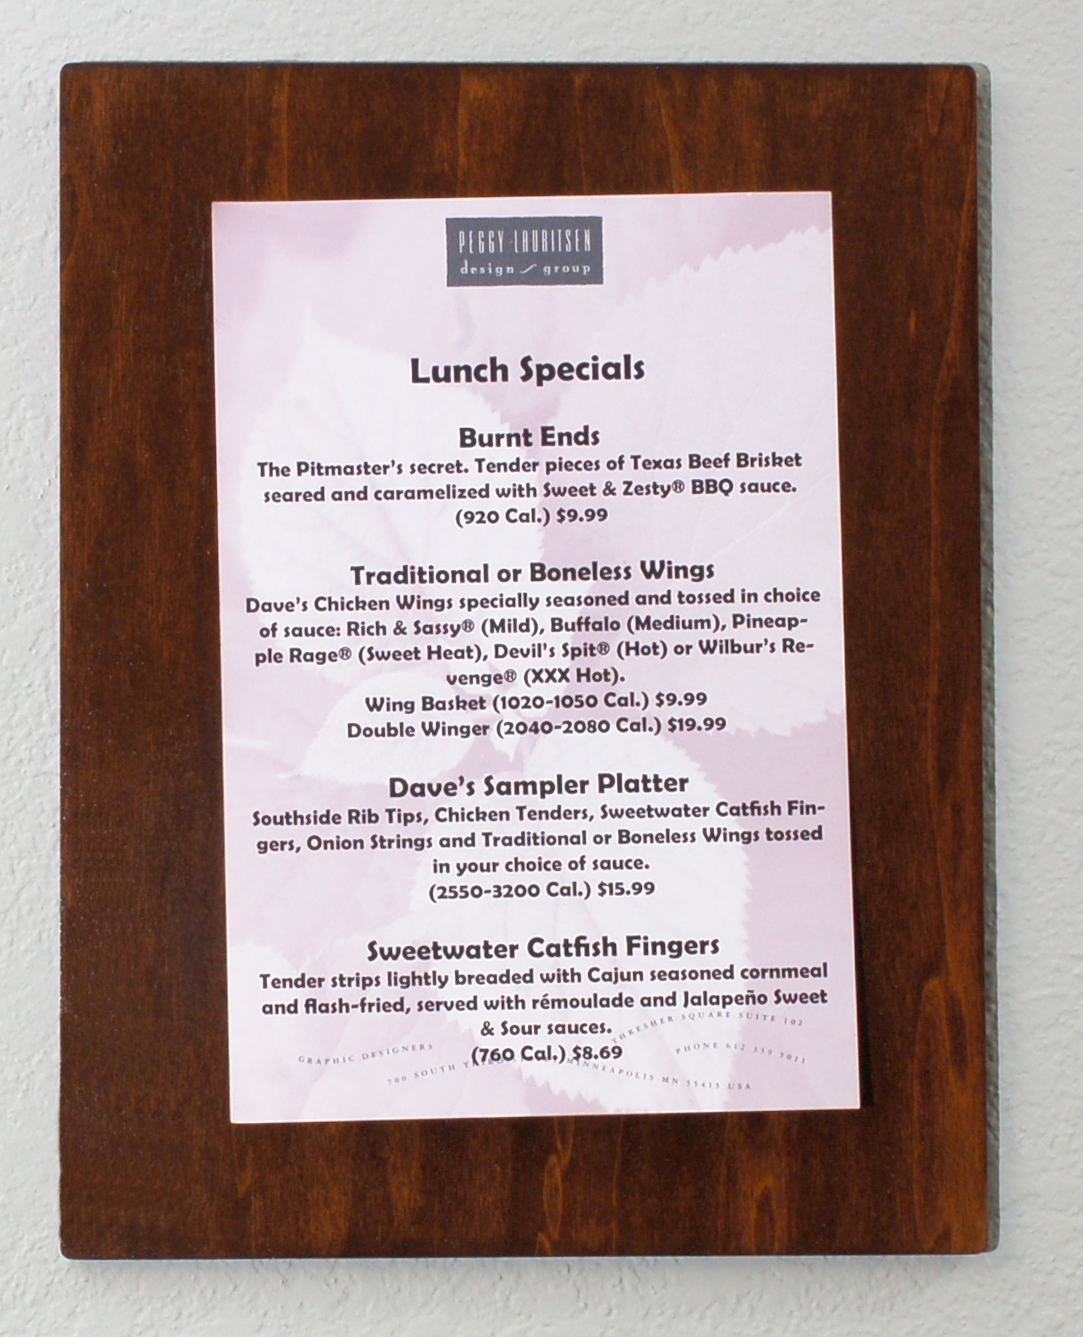 PEGGY LAURITSEN
design group
Lunch Specials
Burnt Ends
The Pitmaster's secret. Tender pieces of Texas Beef Brisket
seared and caramelized with Sweet & Zesty® BBQ sauce.
(920 Cal.) $9.99
Traditional or Boneless Wings
Dave's Chicken Wings specially seasoned and tossed in choice
of sauce: Rich & Sassy® (Mild), Buffalo (Medium), Pineap-
ple Rage® (Sweet Heat), Devil's Spit® (Hot) or Wilbur's Re-
venge® (XXX Hot).
Wing Basket (1020-1050 Cal.) $9.99
Double Winger (2040-2080 Cal.) $19.99
Dave's Sampler Platter
Southside Rib Tips, Chicken Tenders, Sweetwater Catfish Fin-
gers, Onion Strings and Traditional or Boneless Wings tossed
in your choice of sauce.
(2550-3200 Cal.) $15.99
Sweetwater Catfish Fingers
Tender strips lightly breaded with Cajun seasoned cornmeal
and flash-fried, served with rémoulade and Jalapeño Sweet
& Sour sauces.
(760 Cal.) $8.69
GRAPHIC DESIGNERS
THRESHER SQUARE SUITE 102
700 SOUTH MINNEAPOLIS MN 55415 USA
PHONE 612 339 5011